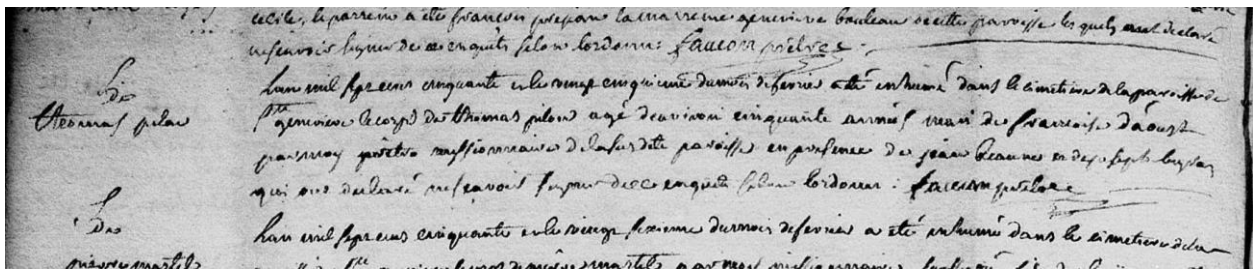 cecile, le parrein a été francois la marreine genevieve bouleau de cette paroisse les quels ont declaré
ne scavoir signer de ce enquis selon lordonn: faucon prêtre
S
de
thomas pilon
Lan mil sept cens cinquante et le vingt cinquieme du mois de fevrier a été enhumé dans le cimetiere de la paroisse de
ste genevieve le corps de thomas pilon agé denviron cinquante années mari de francoise daoust
par moy prêtre missionnaire de la susdite paroisse en presence de jean et de joseph
qui ont declaré ne scavoir signer de ce enquis selon lordonn: faucon prêtre
S
de
pierre martel
Lan mil sept cens cinquante et le vingt sixieme du mois de fevrier a été enhumé dans le cimetiere de la
ste le corps de martel par moy missionnaire